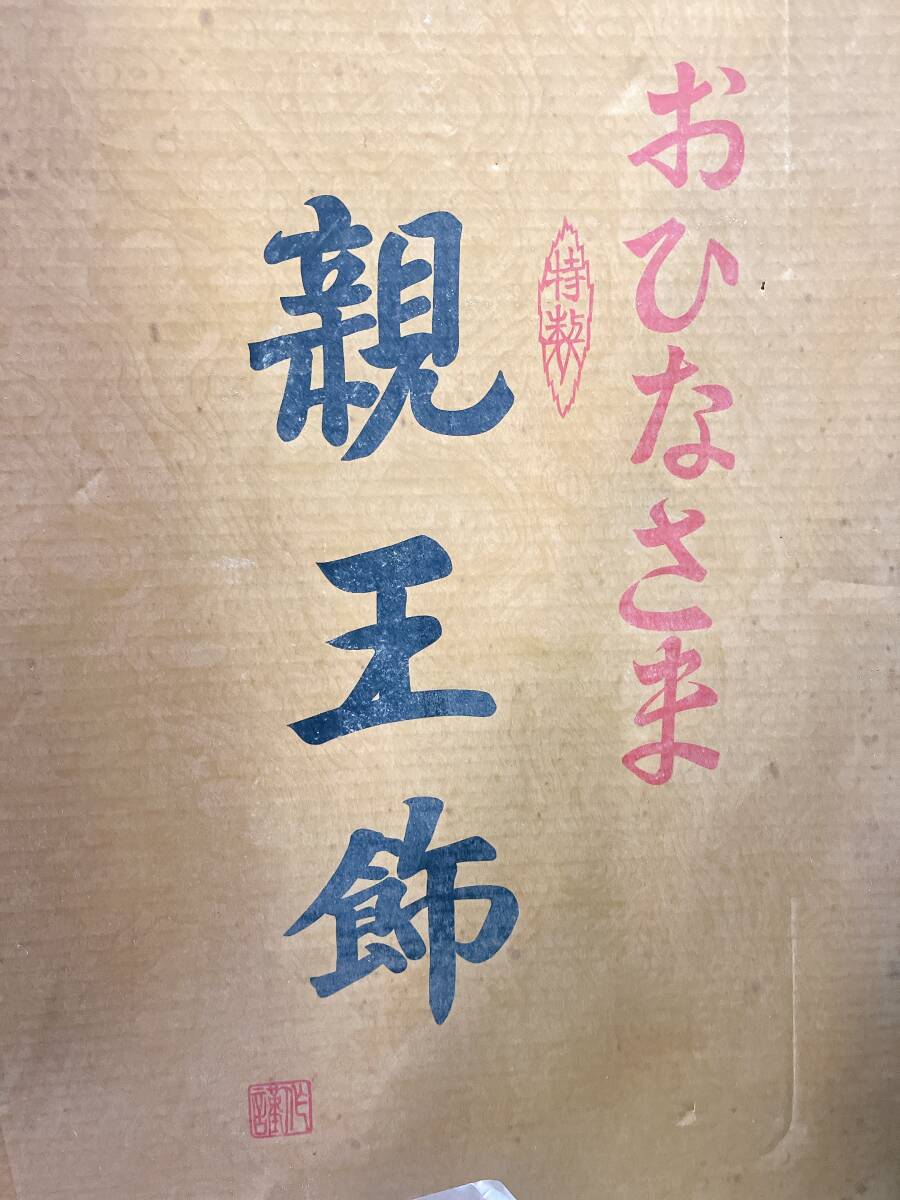 おひなさま
特製
親王飾
謹作